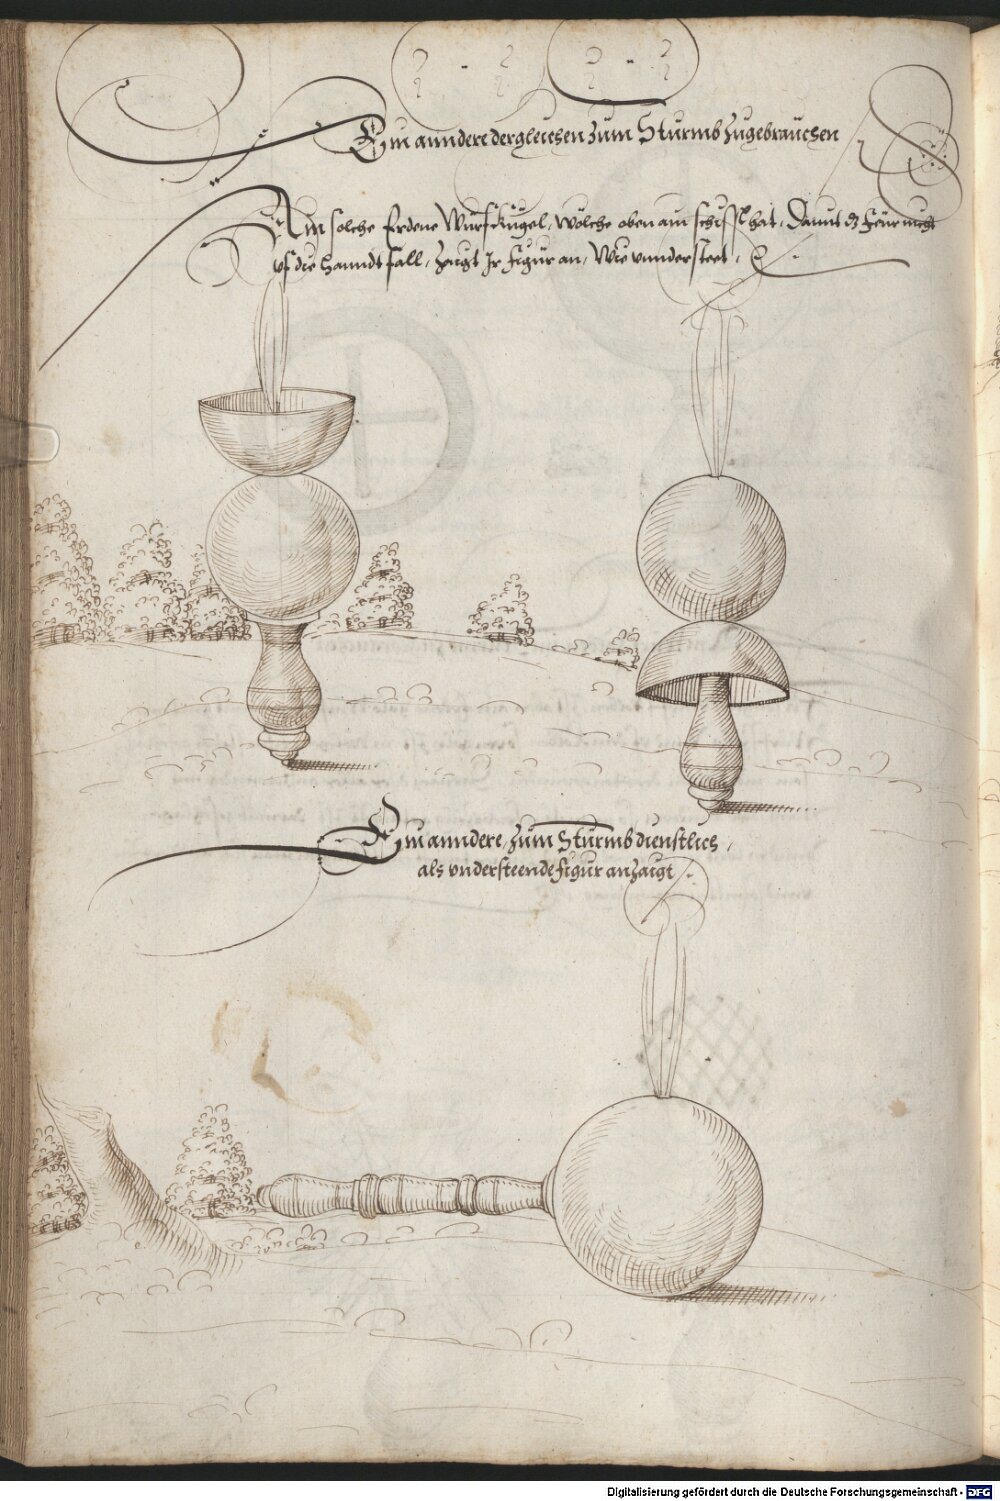 Ein anndere dergleichen zum Sturmb zugebrauchen
Ain solche Erdene Wurfkugel, Wölche oben ain schüssl hat, Damit dz Feür nicht
vf die Hanndt fall, Zaigt Ir Figur an, Wie vnndersteet,
Ein anndere, Zum Sturmb dienstlich,
als vndersteende Figur anzaigt
Digitalisierung gefördert durch die Deutsche Forschungsgemeinschaft - DFG